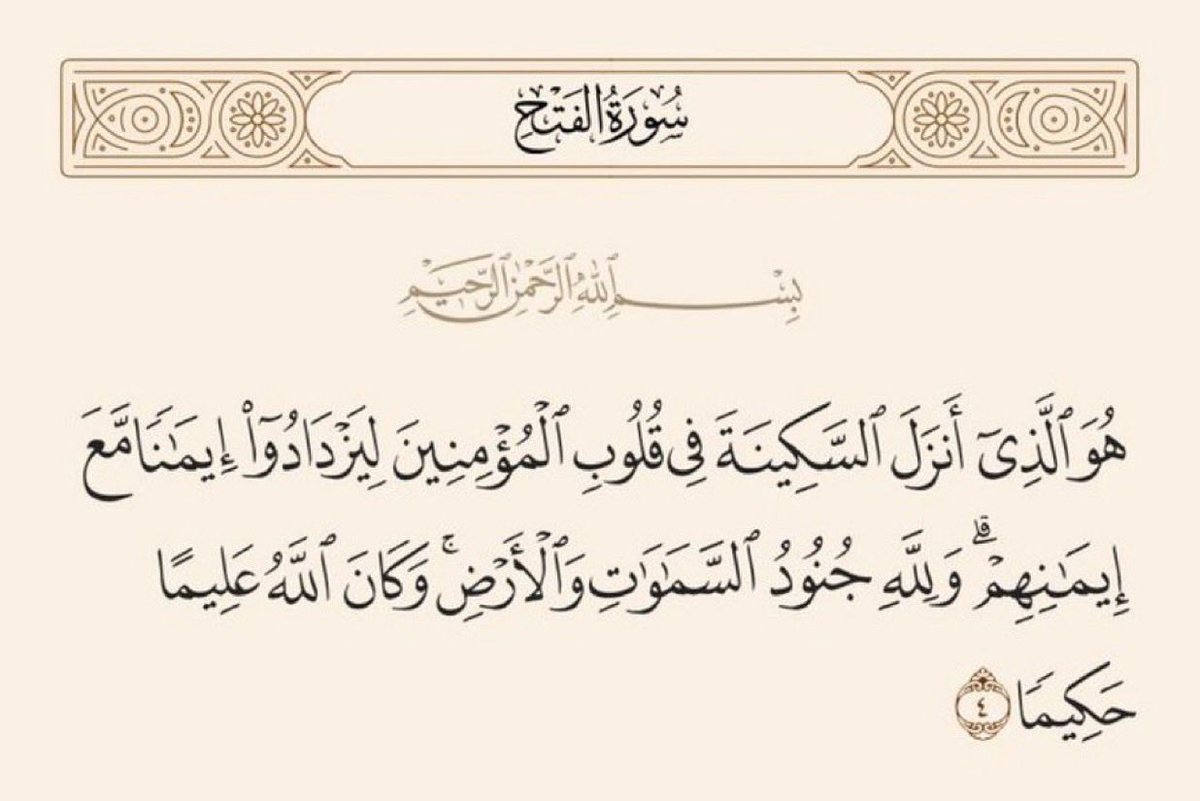 سُورَةُ الفَتْحِ
بِسْمِ ٱللَّهِ ٱلرَّحْمَٰنِ ٱلرَّحِيمِ
هُوَ ٱلَّذِىٓ أَنزَلَ ٱلسَّكِينَةَ فِى قُلُوبِ ٱلْمُؤْمِنِينَ لِيَزْدَادُوٓا۟ إِيمَٰنًا مَّعَ
إِيمَٰنِهِمْ ۗ وَلِلَّهِ جُنُودُ ٱلسَّمَٰوَٰتِ وَٱلْأَرْضِ ۚ وَكَانَ ٱللَّهُ عَلِيمًا
حَكِيمًا ٤